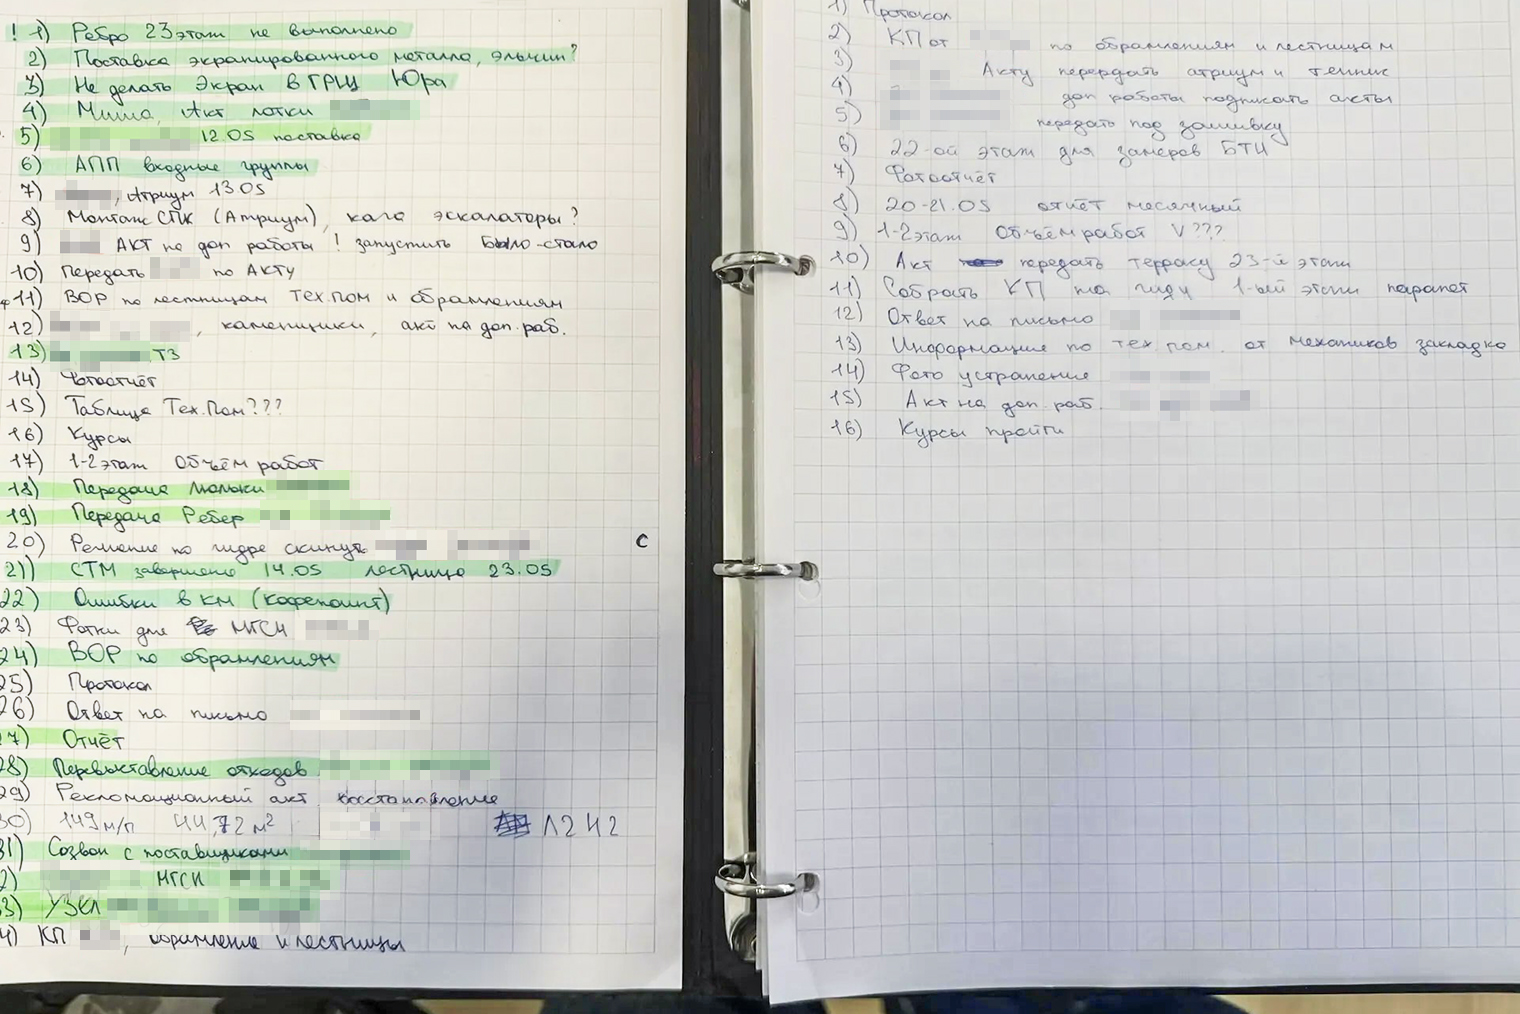 ! 1) Ребро 23 этаж не выполнено
2) Поставка экранированного металла, эльчин?
3) Не делать Экран в ГРЩ Юра
4) Миша, Акт лотки
5) 12.05 поставка
6) АПП входные группы
7) , Атриум 13 05
8) Монтаж СПК (Атриум), когда эскалаторы?
9) АКТ на доп работы ! запустить Было-стало
10) Передать по АКТУ
11) ВОР по лестницам тех.пом и обрамлениям
12) , каменщики, акт на доп. раб.
13) ТЗ
14) Фотоотчёт
15) Таблица Тех.Пом???
16) Курсы
17) 1-2 этаж Объём работ
18) Передача люльки
19) Передача Ребер
20) Решение по гидре скинуть
С
21) СТМ завершено 14.05 лестница 23.05
22) Ошибки в КМ (кофепоинт)
23) Фотки для МГСН
24) ВОР по обрамлениям
25) Протокол
26) Ответ на письмо
27) Отчёт
28) Перевыставление отходов
29) Рекламационный акт восстановление
30) 149 м/п 44,72 м² Л2 Н2
31) Созвон с поставщиками
2) МГСН
33) УЗКЛ
4) КП , обрамление и лестницы
1) Протокол
2) КП от по обрамлениям и лестницам
3) Акту передать атриум и теннис
4) доп работы подписать акты
5) передать под зашивку
6) 22-ой этаж для замеров БТИ
7) Фотоотчёт
8) 20-21.05 отчёт месячный
9) 1-2 этаж Объём работ V???
10) Акт передать террасу 23-й этаж
11) Собрать КП на гидру 1-ый этаж парапет
12) Ответ на письмо
13) Информация по тех. пом. от механиков
14) Фото устранение
15) Акт на доп. раб.
16) Курсы пройти